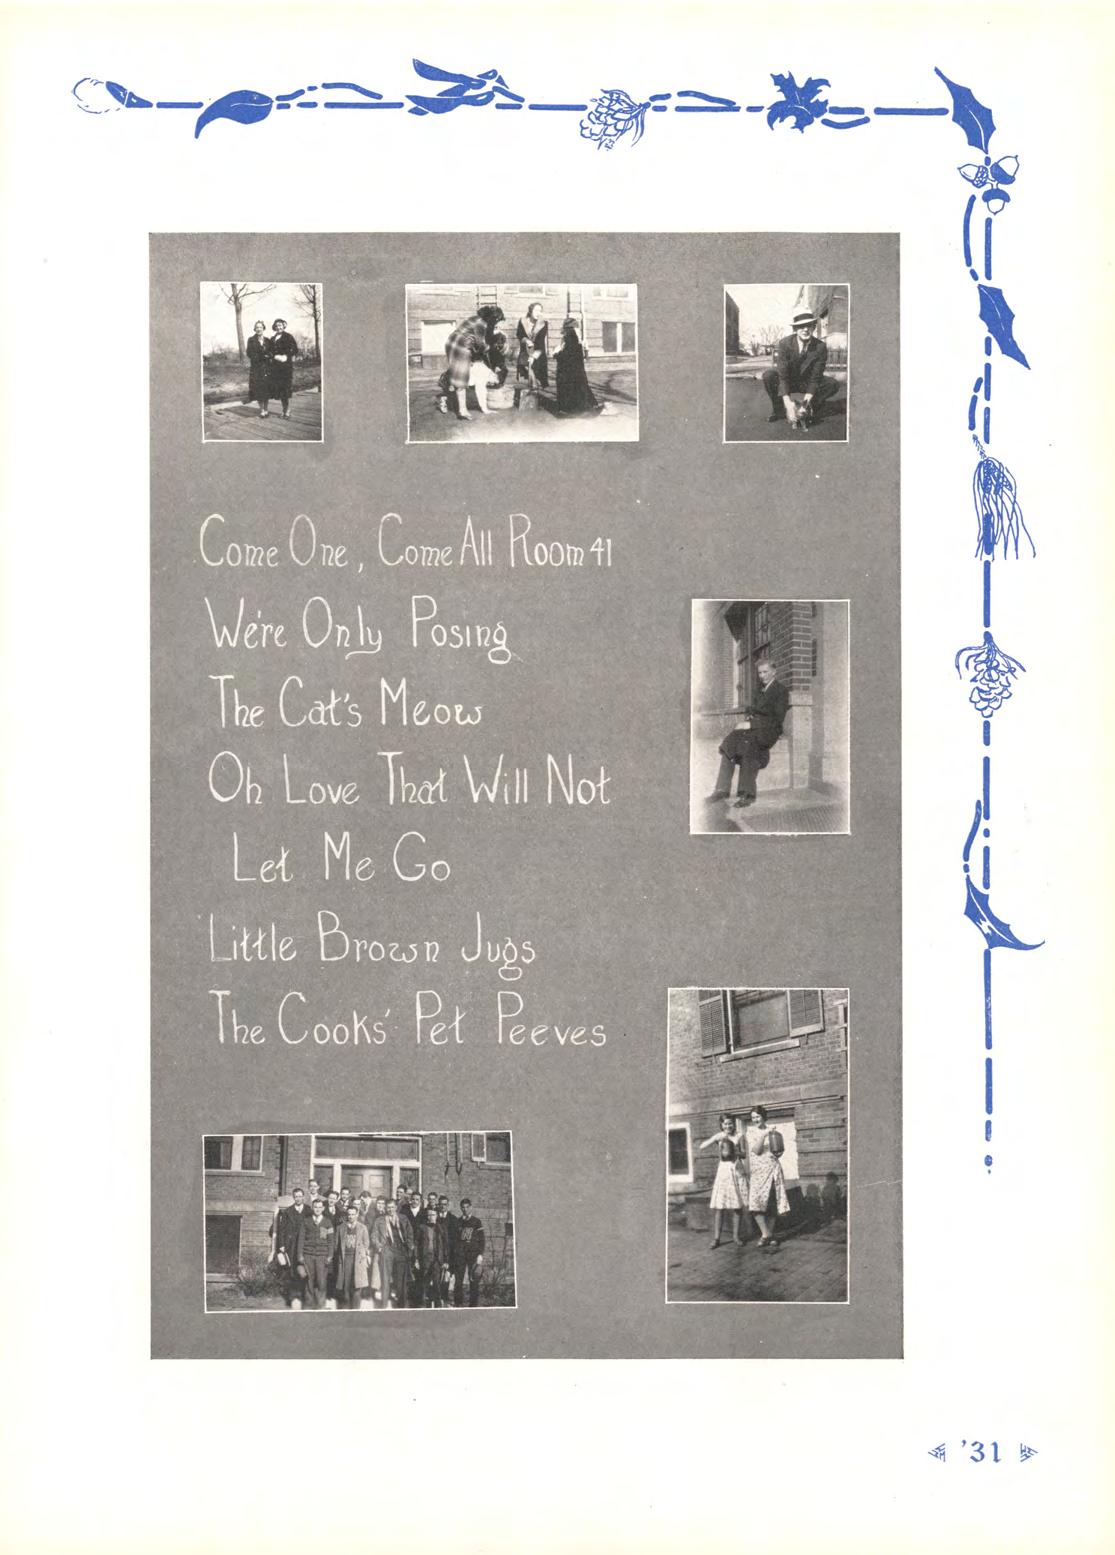 Come One, Come All Room 41
We're Only Posing
The Cat's Meow
Oh Love That Will Not
Let Me Go
Little Brown Jugs
The Cooks' Pet Peeves
'31